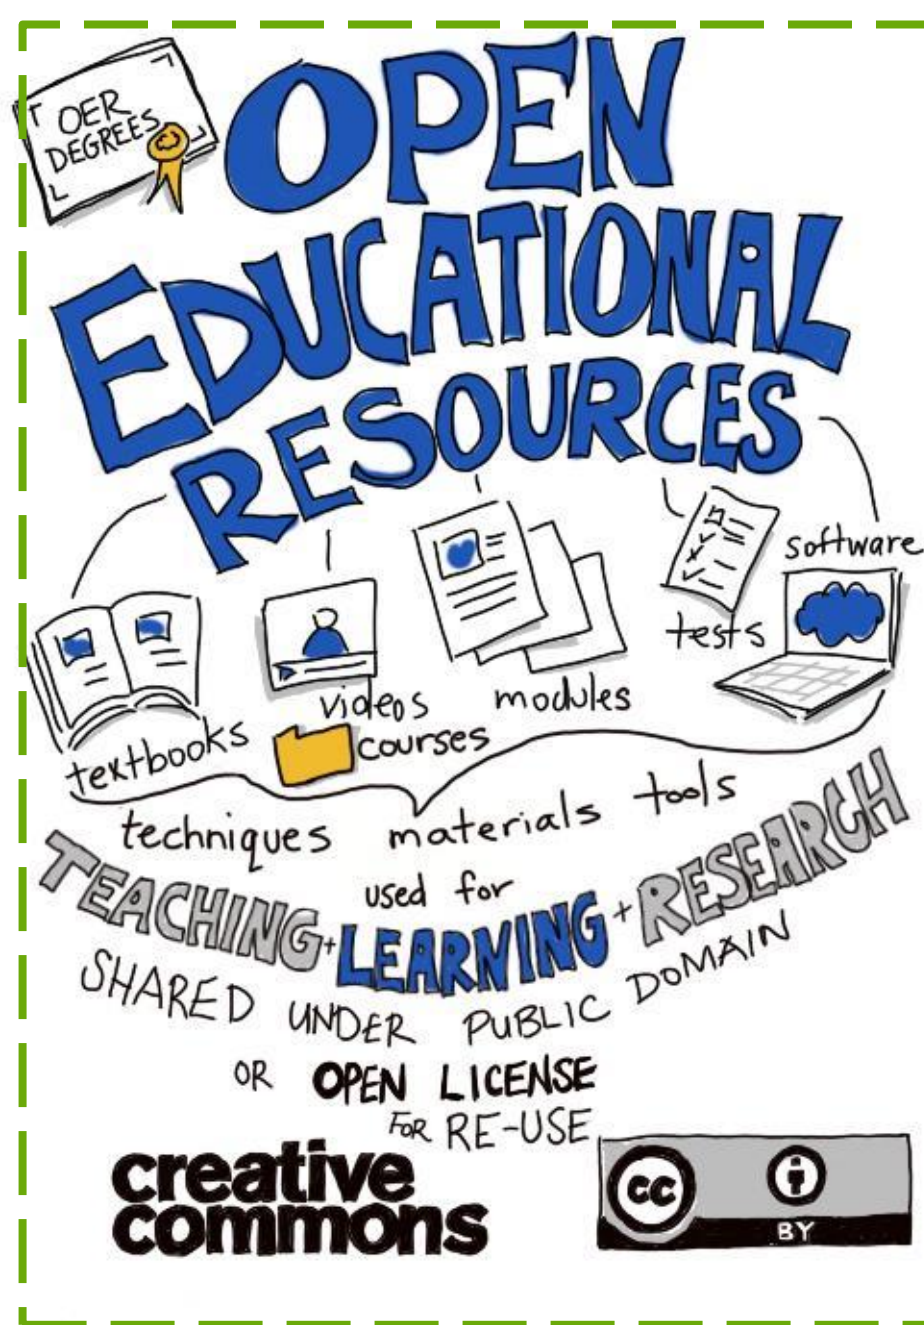 OER
DEGREES
OPEN
EDUCATIONAL
RESOURCES
software
tests
modules
videos
textbooks
courses
techniques materials tools
used for
TEACHING + LEARNING + RESEARCH
SHARED UNDER PUBLIC DOMAIN
OR OPEN LICENSE
FOR RE-USE
creative
commons
cc
BY